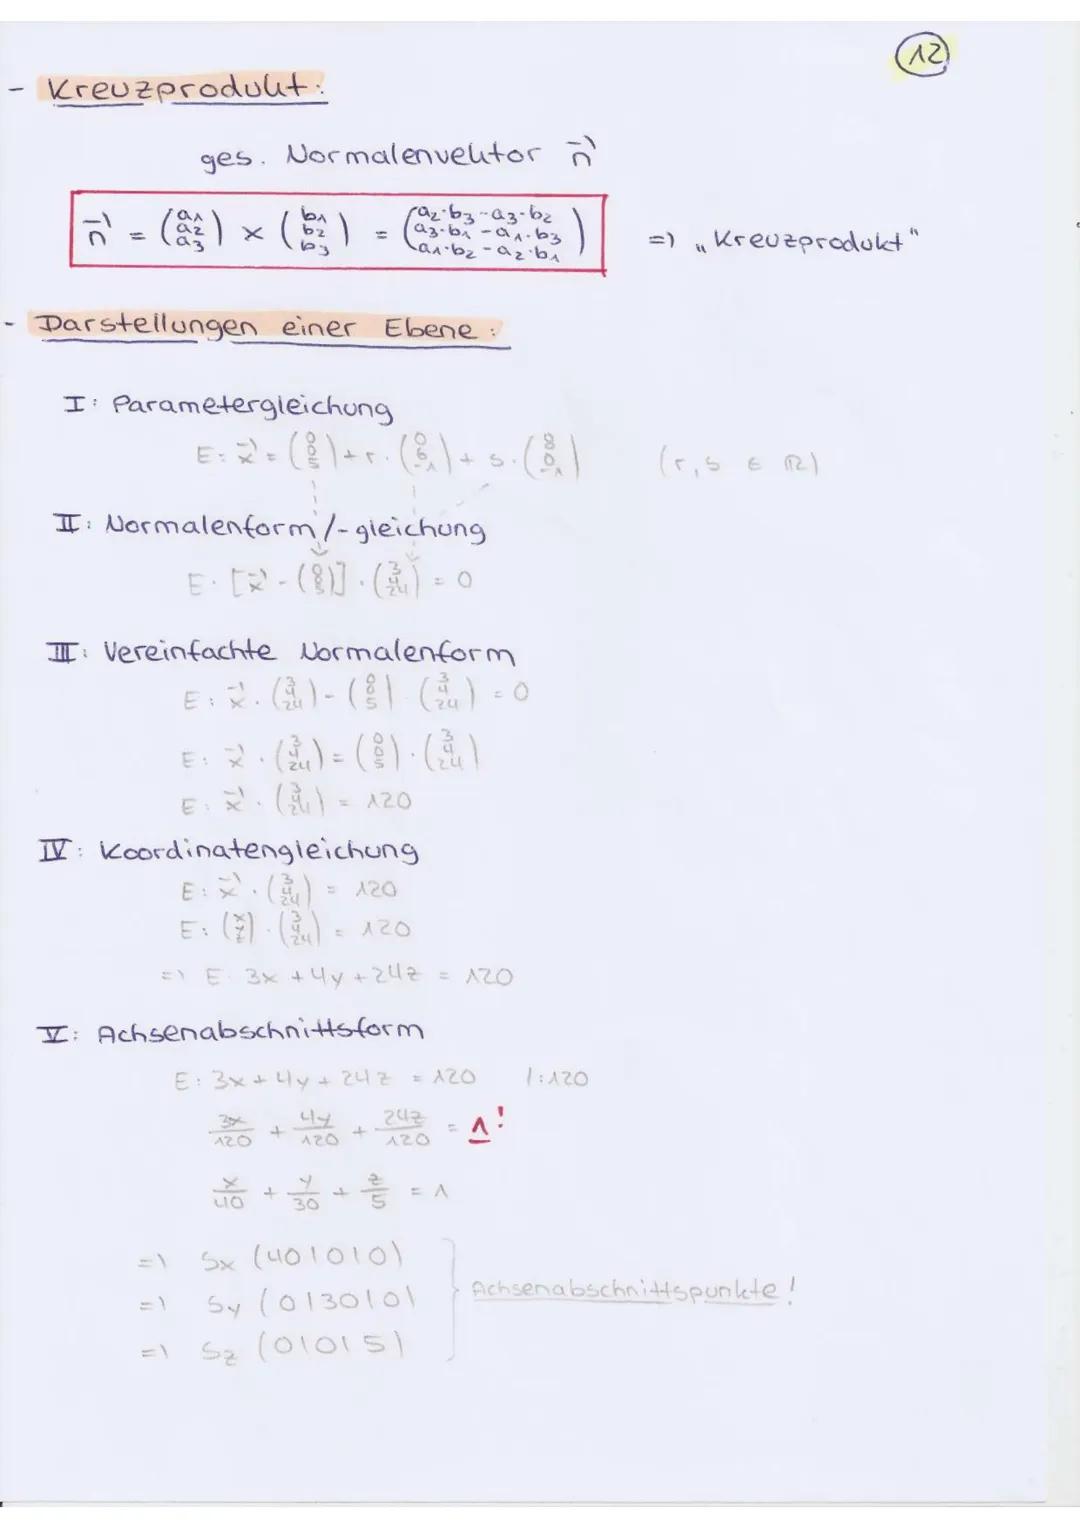 12
- Kreuzprodukt:
ges. Normalenvektor n⃗
n⃗ = (a1 a2 a3) × (b1 b2 b3) = (a2·b3-a3·b2 a3·b1-a1·b3 a1·b2-a2·b1) => „Kreuzprodukt"
- Darstellungen einer Ebene:
I: Parametergleichung
E: x⃗ = (0 0 5) + r · (0 6 -1) + s · (8 0 -1) (r, s ∈ ℝ)
II: Normalenform/-gleichung
E: [x⃗ - (0 0 5)] · (3 4 24) = 0
III: Vereinfachte Normalenform
E: x⃗ · (3 4 24) - (0 0 5) · (3 4 24) = 0
E: x⃗ · (3 4 24) = (0 0 5) · (3 4 24)
E: x⃗ · (3 4 24) = 120
IV: Koordinatengleichung
E: x⃗ · (3 4 24) = 120
E: (x y z) · (3 4 24) = 120
=> E: 3x + 4y + 24z = 120
V: Achsenabschnittsform
E: 3x + 4y + 24z = 120 /:120
3x/120 + 4y/120 + 24z/120 = 1!
x/40 + y/30 + z/5 = 1
=> Sx (40|0|0)
=> Sy (0|30|0)
=> Sz (0|0|5)
Achsenabschnittspunkte!